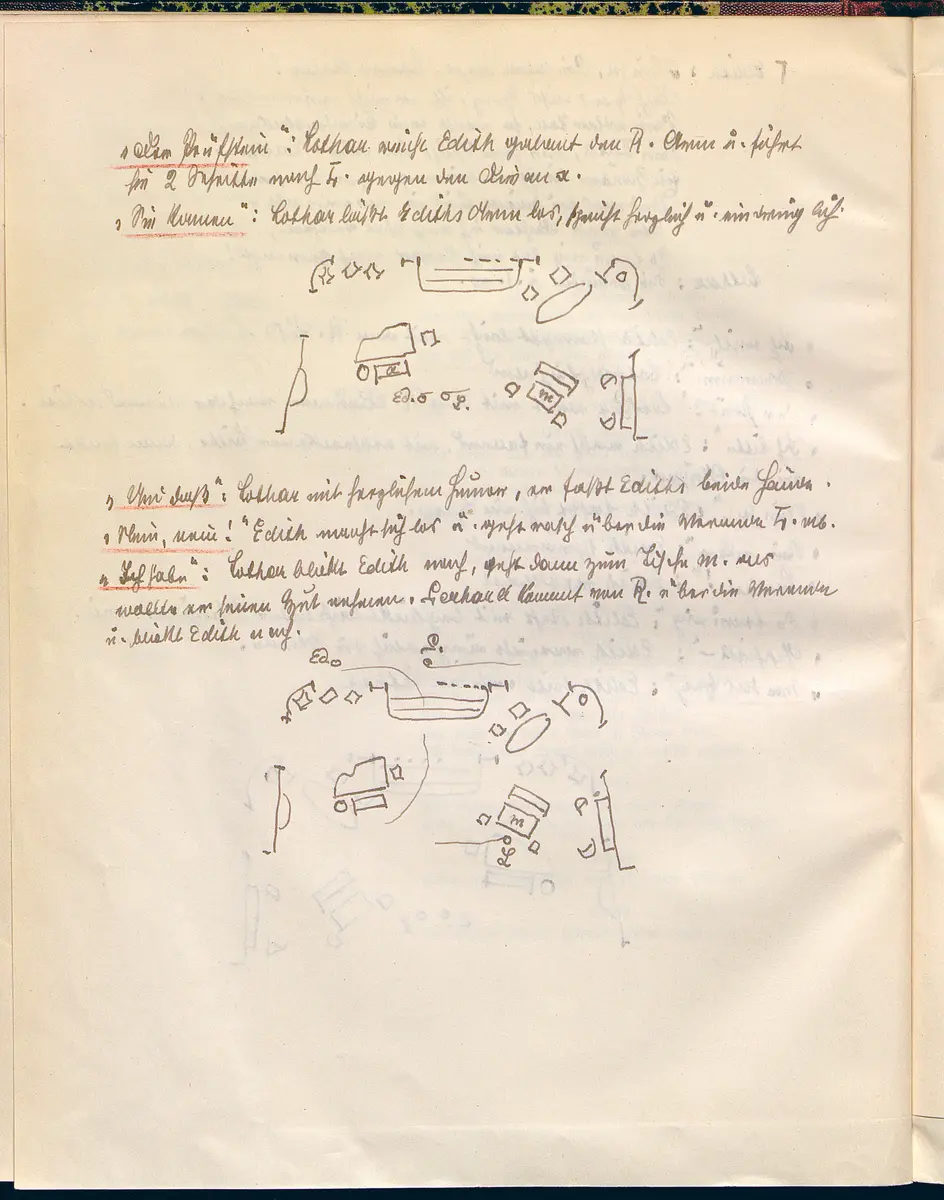 „Der Prüfstein“: Lothar reicht Edith galant den R. Arm u. führt
sie 2 Schritte nach L. gegen den Divan x.
„Sie kamen“: Lothar läßt Ediths Arm los, spricht herzlich u. eindringlich.
x
m
Ed. L.
„Und daß“: Lothar mit herzlichem Humor, er faßt Ediths beide Hände.
„Nein, nein!“ Edith macht sich los u. geht rasch über die Veranda L. ab.
„Ich habe“: Lothar blickt Edith nach, geht dann zum Tische m. als
wollte er seinen Hut nehmen. Gerhard kommt von R. über die Veranda
u. blickt Edith nach.
Ed. G.
m